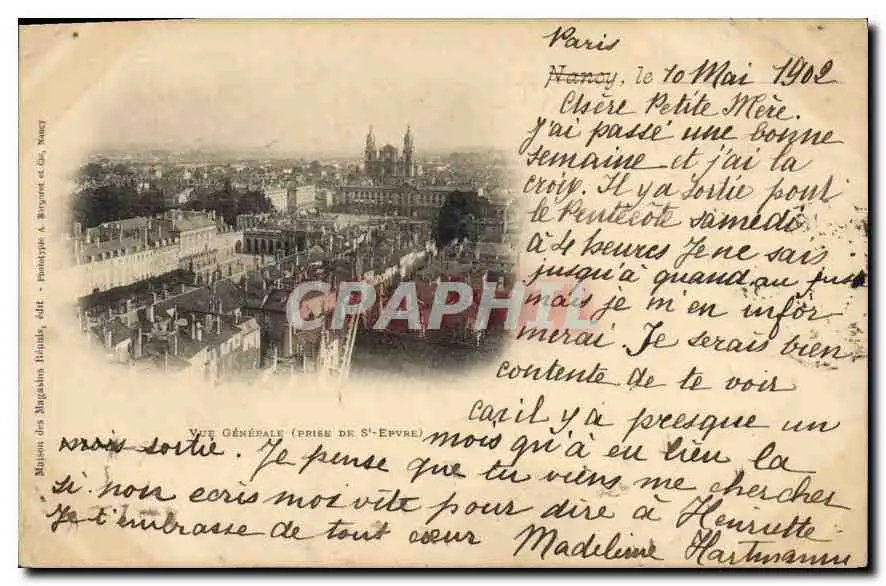 Paris
Nancy, le 10 Mai 1902
Chère Petite Mère.
J'ai passé une bonne
semaine et j'ai la
croix. Il y a sortie pour
le Pentecôte samedi
à 4 heures Je ne sais
jusqu'à quand, au just
mais je m'en infor
merai. Je serais bien
contente de te voir
car il y a presque un
mois qu'à eu lieu la
mois sortie. Je pense que tu viens me chercher
si non ecris moi vite pour dire à Henriette
Je t'embrasse de tout cœur Madeleine Hartmann
VUE GÉNÉRALE (PRISE DE St-EPVRE)
Maison des Magasins Réunis, édit - Phototypie A. Bergeret et Cie, Nancy
CRAPHIL.COM